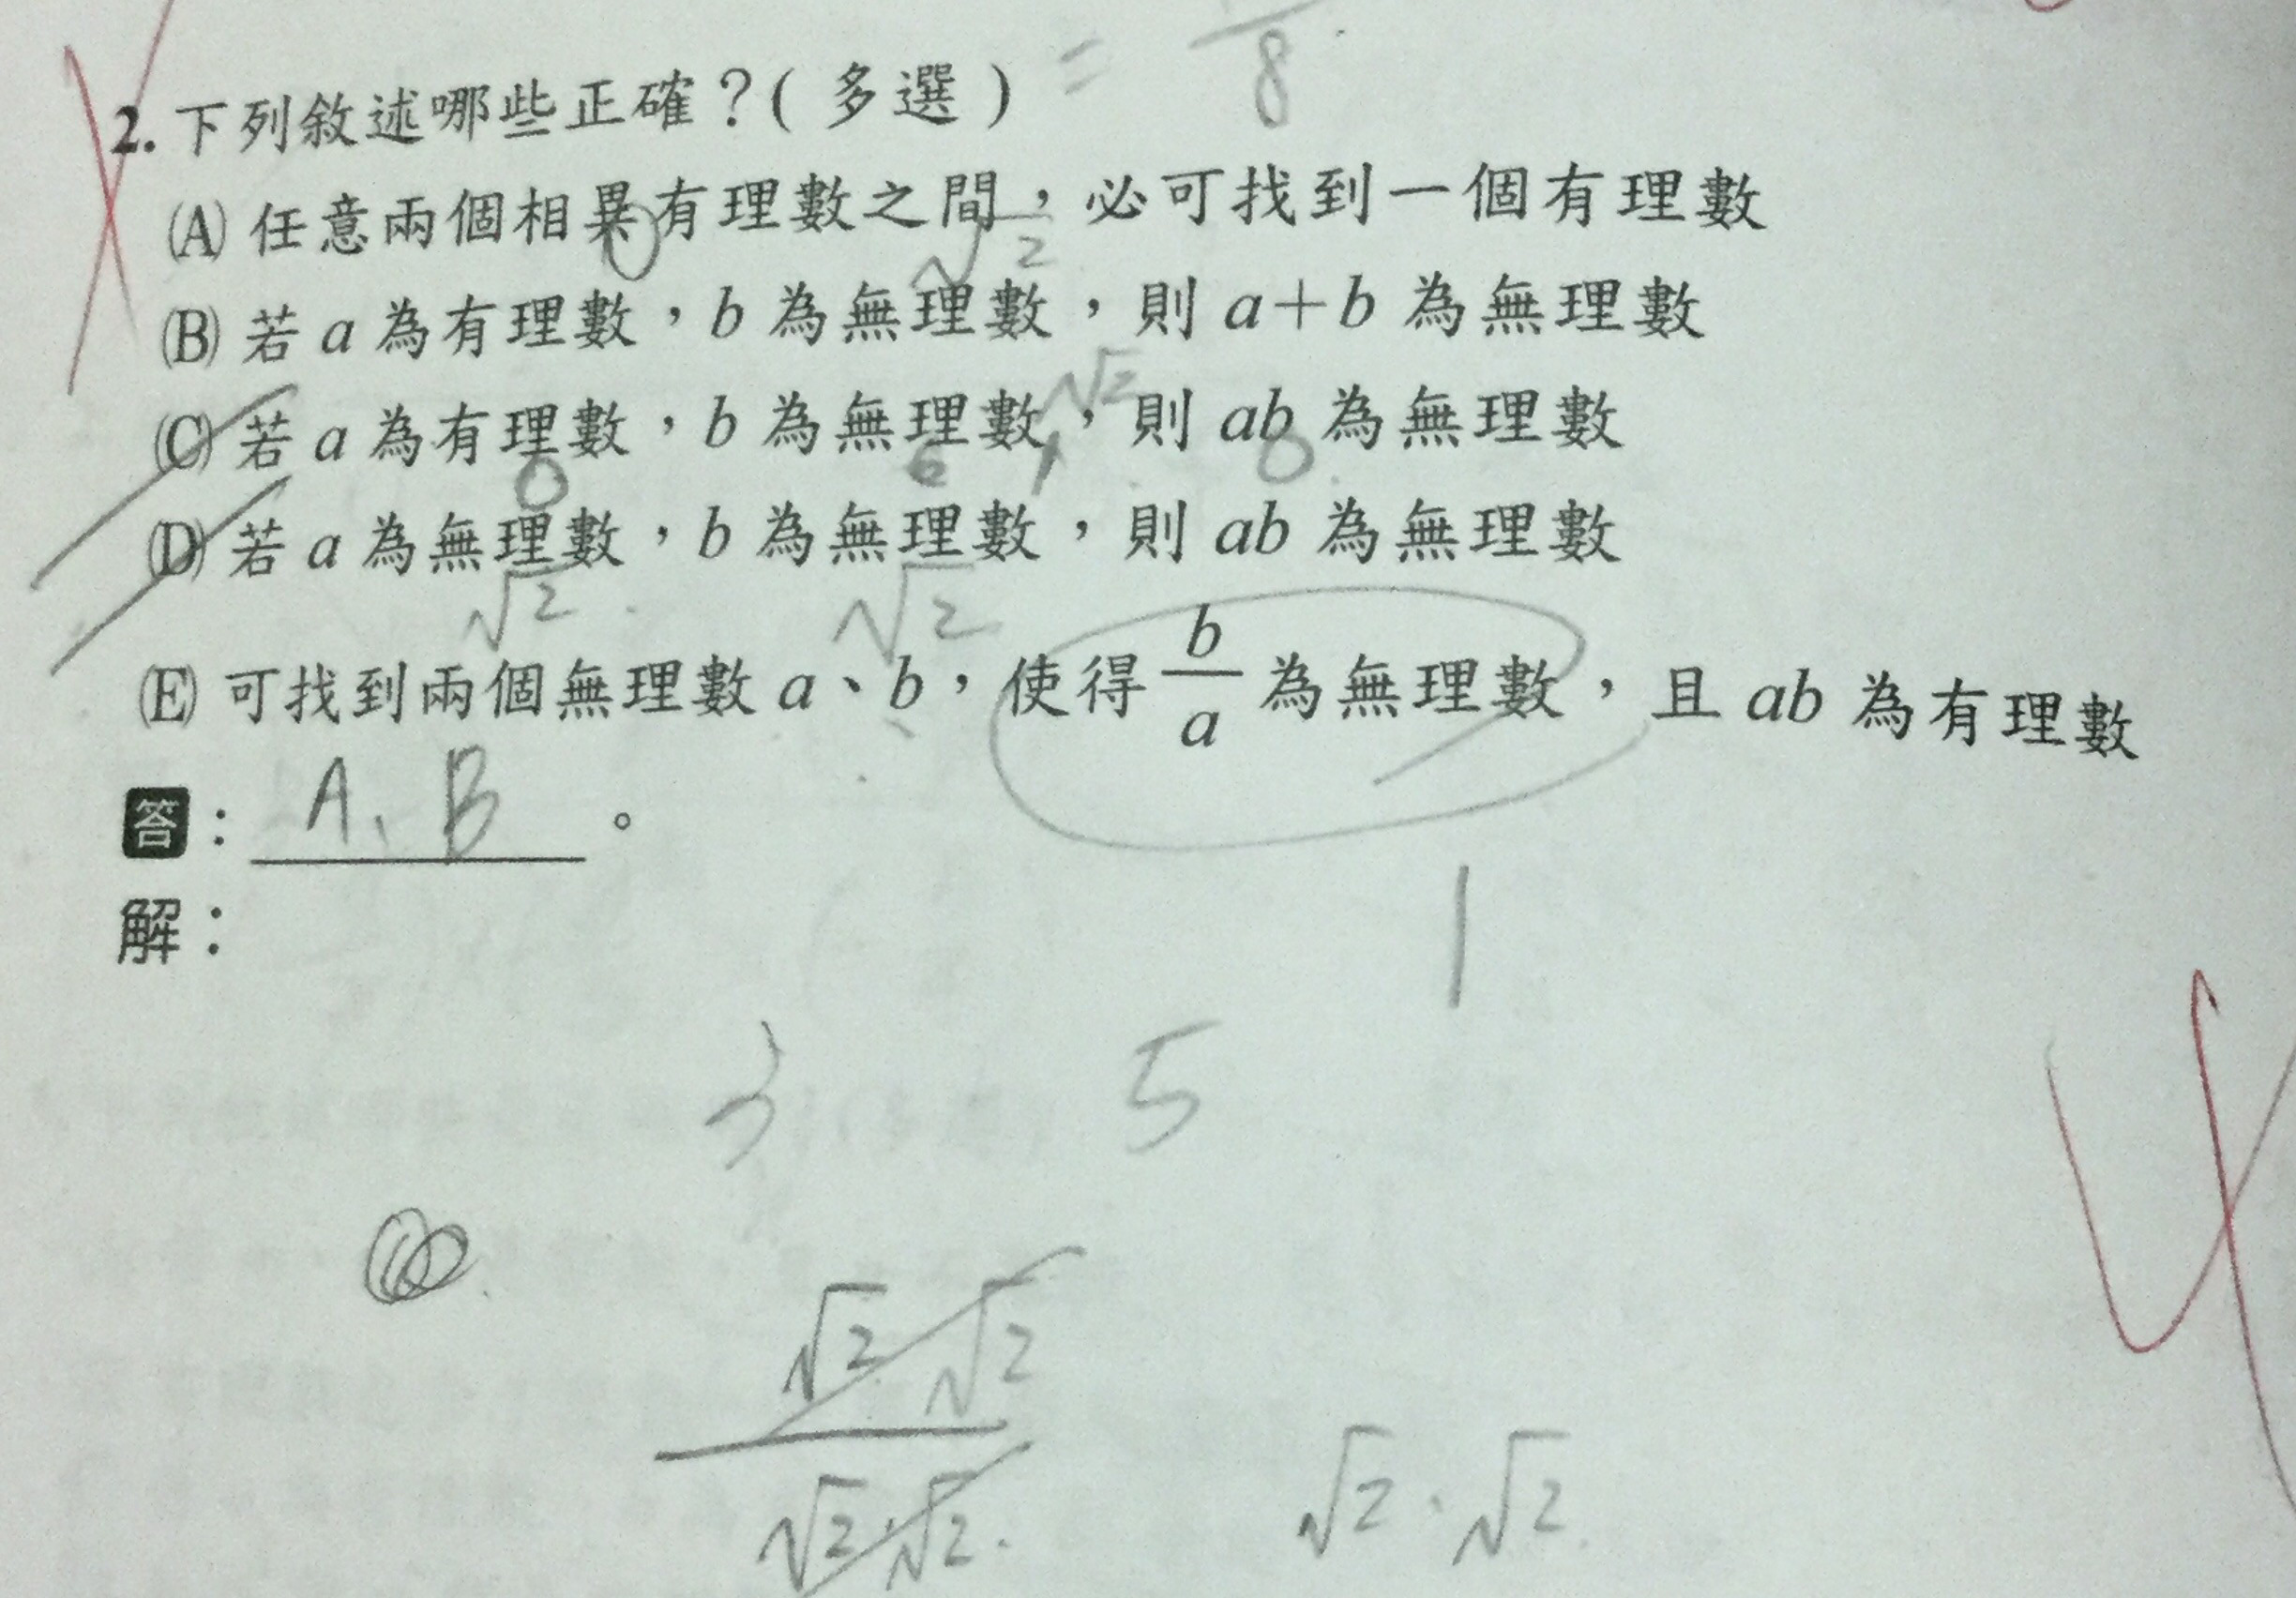 = 8
2. 下列敘述哪些正確？( 多選 )
(A) 任意兩個相異有理數之間，必可找到一個有理數
0 √2
(B) 若 a 為有理數，b 為無理數，則 a+b 為無理數
√2
(C) 若 a 為有理數，b 為無理數，則 ab 為無理數
0 0
(D) 若 a 為無理數，b 為無理數，則 ab 為無理數
√2 √2
(E) 可找到兩個無理數 a、b，使得 b/a 為無理數，且 ab 為有理數
答： A、B 。
解：
1
3 5
√2 √2
√2·√2 √2·√2